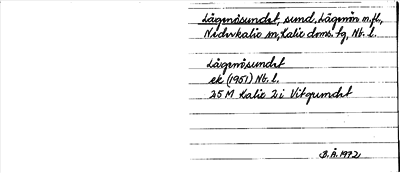 Lågmösundet, sund, Lågmön m.fl.,
Nederkalix sn, Kalix dms. tg, Nb. l.
Lågmösundet
ek (1951) Nb. l.
25 M Kalix 2 i Vitgrundet
B.Å. 1972